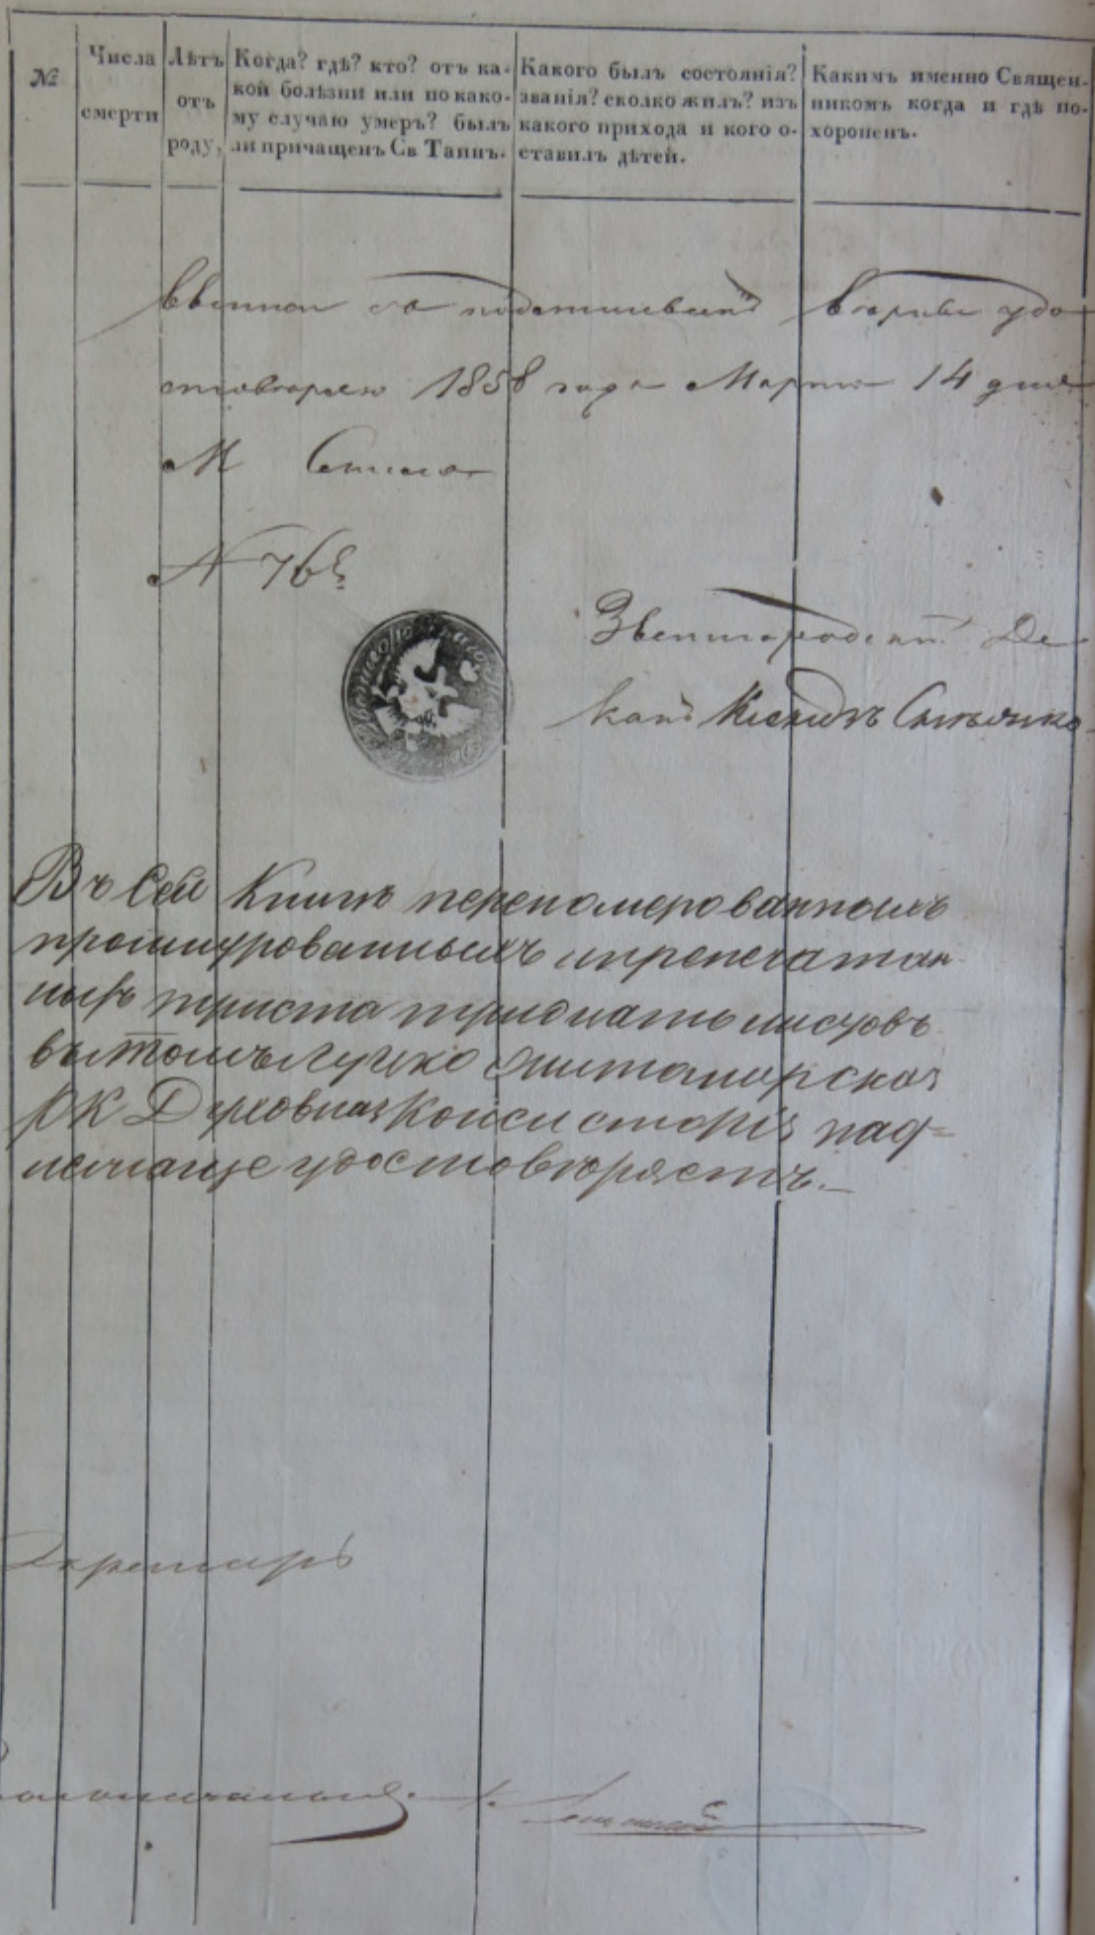 №
Числа
смерти
Лѣтъ
отъ
роду,
Когда? гдѣ? кто? отъ ка-
кой болѣзни или по како-
му случаю умеръ? былъ
ли причащенъ Св Таинъ.
Какого былъ состоянія?
званія? сколко жилъ? изъ
какого прихода и кого о-
ставилъ дѣтей.
Какимъ именно Священ-
никомъ когда и гдѣ по-
хороненъ.
съ подлиннымъ вѣрна удо
стовѣряю 1858 года Марта 14 дня
М
N 76
Звенигородскій Де
канъ
Въ сей Книгѣ перено­мерованныхъ
прошнурованныхъ ипрепечатан
ныхъ триста тридцать листовъ
вътомъ Луцко Житомирская
РК Духовная Консисторія над=
лежаще удостовѣряетъ.
Секретарь